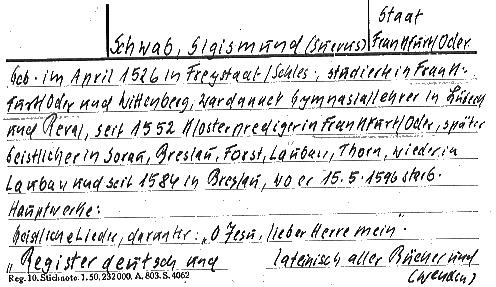 Staat
Schwab, Sigismund (Suevus) Frankfurt/Oder
Geb. im April 1526 in Freystadt/Schles., studierte in Frank-
furt/Oder und Wittenberg, war dann Gymnasiallehrer in Lübeck
und Reval, seit 1552 Klosterprediger in Frankfurt/Oder, später
Geistlicher in Sorau, Breslau, Forst, Lauban, Thorn, wieder in
Lauban und seit 1584 in Breslau, wo er 15.5.1596 starb.
Hauptwerke:
Geistliche Lieder, darunter: „O Jesu, lieber Herre mein"
„Register deutsch und lateinisch aller Bücher und
(wenden)
Reg. 10. Stichnote. 1. 50, 232000. A. 803. S. 4062